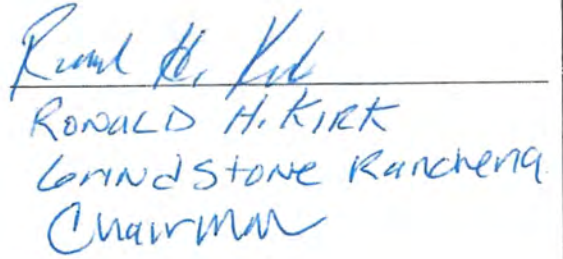 Ronald H. Kirk
RONALD H. KIRK
Grindstone Rancheria
Chairman